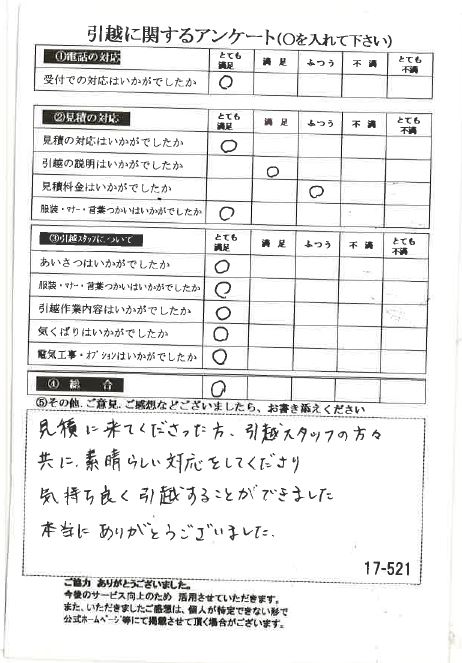 引越に関するアンケート(○を入れて下さい)
①電話の対応 とても満足 満足 ふつう 不満 とても不満
受付での対応はいかがでしたか ○
②見積の対応 とても満足 満足 ふつう 不満 とても不満
見積の対応はいかがでしたか ○
引越の説明はいかがでしたか ○
見積料金はいかがでしたか ○
服装・マナー・言葉つかいはいかがでしたか ○
③引越スタッフについて とても満足 満足 ふつう 不満 とても不満
あいさつはいかがでしたか ○
服装・マナー・言葉つかいはいかがでしたか ○
引越作業内容はいかがでしたか ○
気くばりはいかがでしたか ○
電気工事・オプションはいかがでしたか ○
④ 総 合 ○
⑤その他、ご意見、ご感想などございましたら、お書き添えください
見積に来てくださった方、引越スタッフの方々
共に、素晴らしい対応をしてくださり
気持ち良く引越することができました
本当にありがとうございました.
17-521
ご協力 ありがとうございました。
今後のサービス向上のため 活用させていただきます。
また、いただきましたご感想は、個人が特定できない形で
公式ホームページ等にて掲載させて頂く場合がございます。